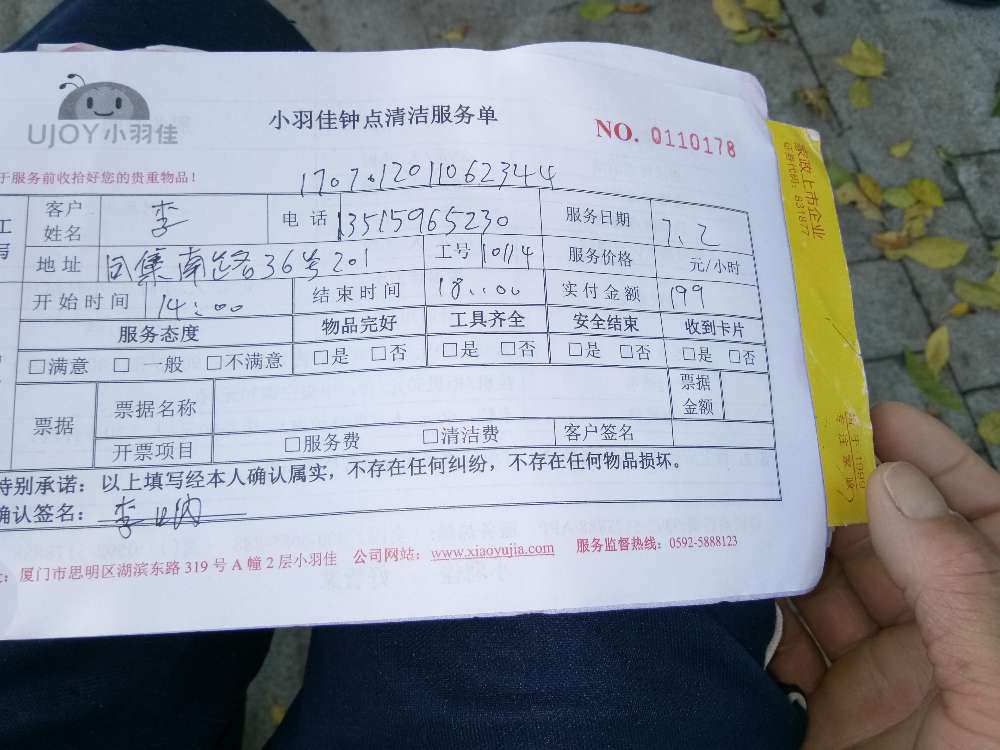 UJOY小羽佳
小羽佳钟点清洁服务单
NO. 0110178
于服务前收拾好您的贵重物品！
1707120110623444
客户姓名 李 电话 13515965230 服务日期 7、2
地址 同集南路36号201 工号 10114 服务价格 元/小时
开始时间 14:00 结束时间 18:00 实付金额 199
服务态度 物品完好 工具齐全 安全结束 收到卡片
□满意 □一般 □不满意 □是 □否 □是 □否 □是 □否 □是 □否
票据 票据名称 票据金额
开票项目 □服务费 □清洁费 客户签名
特别承诺：以上填写经本人确认属实，不存在任何纠纷，不存在任何物品损坏。
确认签名：李
厦门市思明区湖滨东路 319 号 A 幢 2 层小羽佳 公司网站：www.xiaoyujia.com 服务监督热线：0592-5888123
家政上市企业
证券代码：831877